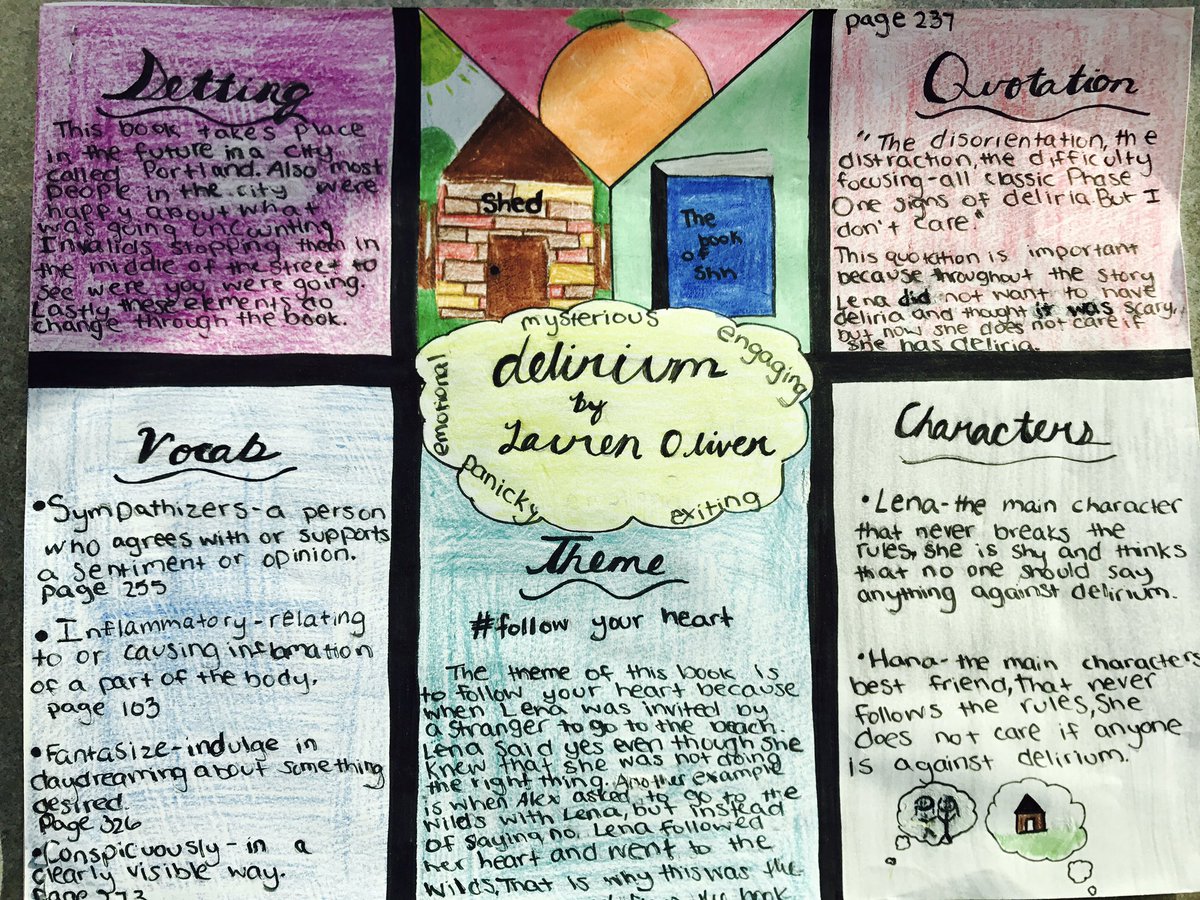 Setting
This book takes place
in the future in a city
called Portland. Also most
people in the city were
happy about what
was going on counting
Invalids stopping them in
the middle of the street to
see were you were going.
Lastly these elements do
change through the book.
Shed
The
book
of
shh
page 237
Quotation
"The disorientation, the
distraction, the difficulty
focusing-all classic Phase
One signs of deliria. But I
don't care."
This quotation is important
because throughout the story
Lena did not want to have
deliria and thought it was scary,
but now she does not care if
she has deliria.
mysterious
engaging
emotional
panicky
exiting
delirium
by
Lauren Oliver
Vocab
•Sympathizers-a person
who agrees with or supports
a sentiment or opinion.
page 255
•Inflammatory-relating
to or causing inflamation
of a part of the body.
page 103
•Fantasize-indulge in
daydreaming about something
desired.
Page 326
•Conspicuously-in a
clearly visible way.
Theme
#follow your heart
The theme of this book is
to follow your heart because
when Lena was invited by
a stranger to go to the beach.
Lena said yes even though she
knew that she was not doing
the right thing. Another example
is when Alex asked to go to the
wilds with Lena, but instead
of saying no. Lena followed
her heart and went to the
wilds, That is why this was the
book
Characters
•Lena-the main character
that never breaks the
rules, she is shy and thinks
that no one should say
anything against delirium.
•Hana-the main characters
best friend, That never
follows the rules, She
does not care if anyone
is against delirium.